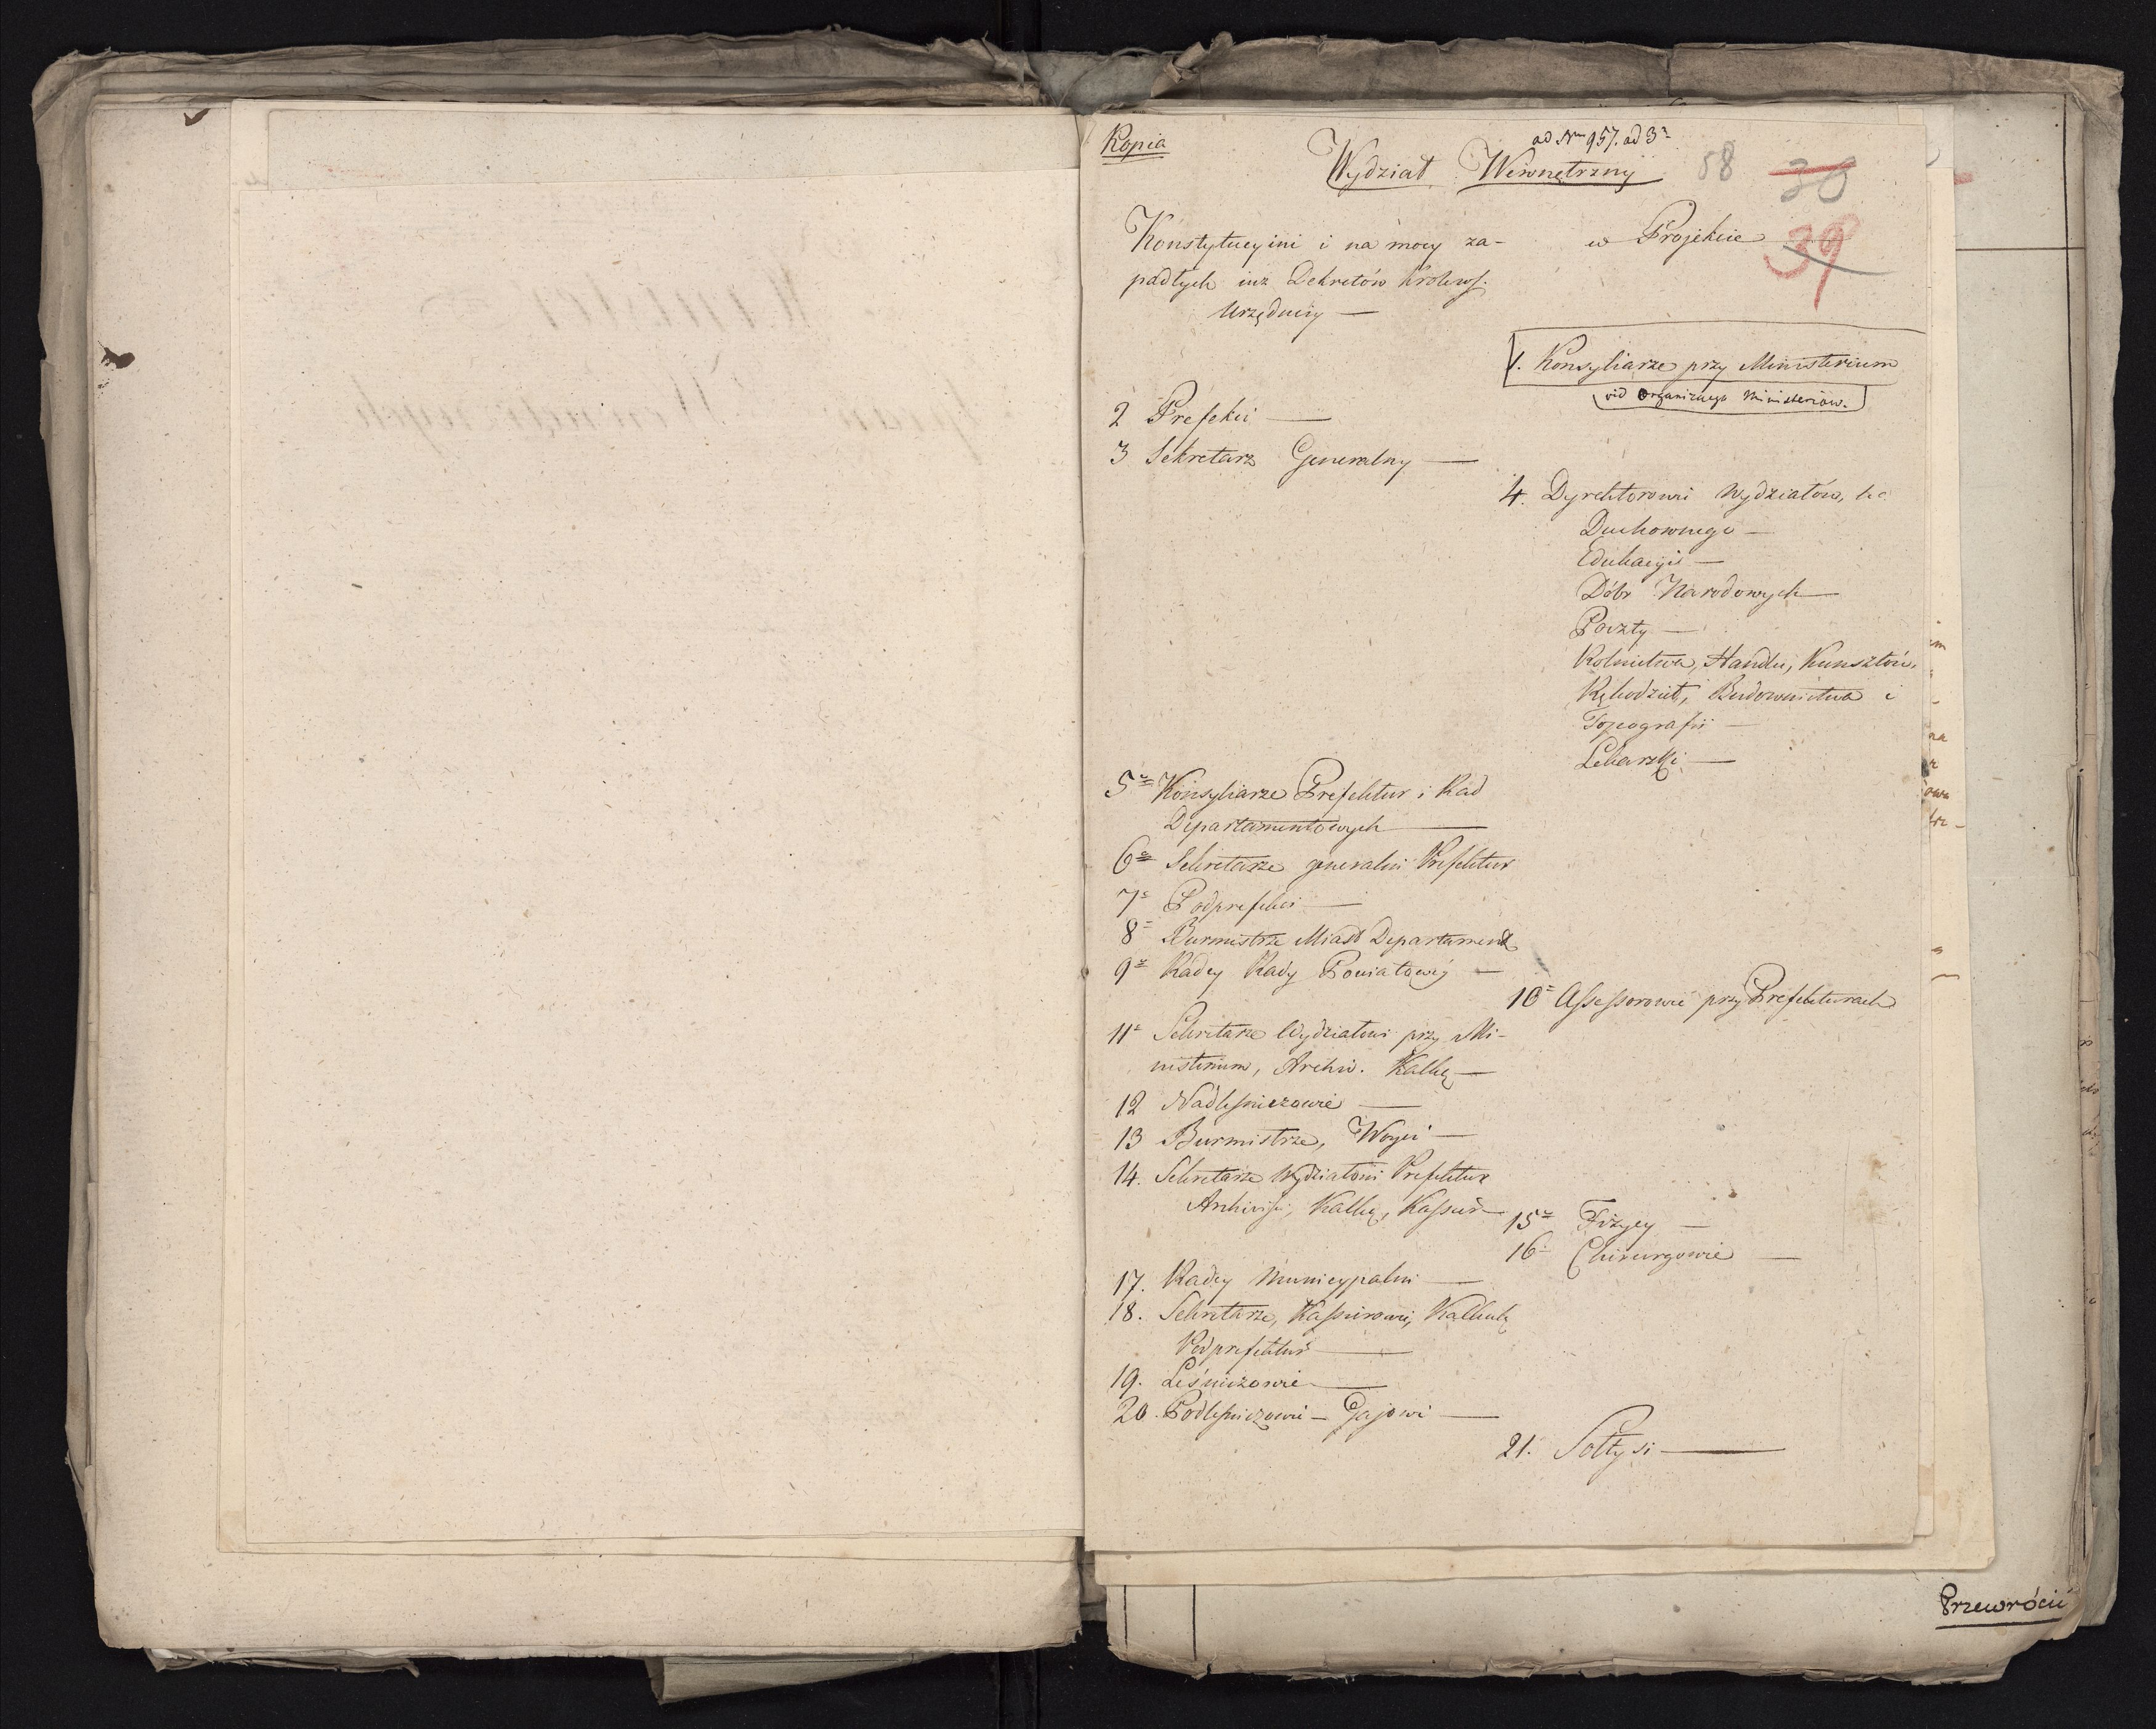 Kopia
ad Nrm 957. ad 3?
Wydział Wewnętrzny
58
30
39
Konstytucyini i na mocy za-
padłych iuż Dekretów Królews.
Urzędnicy —
w Projekcie
1. Konsyliarze przy Ministerium
vid organicznego Ministeriów.
2 Prefekci —
3 Sekretarz Generalny —
4. Dyrektorowie Wydziałów,
Duchownego —
Edukacyi —
Dóbr Narodowych —
Poczty —
Rolnictwa, Handlu, Kunsztów,
Rękodzieł, Budownictwa i
Topografii —
Lekarski —
5 Konsyliarze Prefektur i Rad
Departamentowych —
6 Sekretarze generalni Prefektur
7 Podprefekci —
8 Burmistrze Miast Departament
9 Radcy Rady Powiatowéy —
10 Assessorowie przy Prefekturach
11 Sekretarze Wydziałowi przy Mi-
nisterium, Archiw. Kalku —
12 Nadleśniczowie —
13 Burmistrze, Woyci —
14. Sekretarze Wydziałowi Prefektur
Archiwiści, Kalku, Kassier —
15 Fizycy —
16 Chirurgowie —
17. Radcy Municypalni —
18. Sekretarze, Kassierowie, Kalkul
Podprefektur —
19. Leśniczowie —
20. Podleśniczowie — Gajowi —
21. Sołtysi —
Przewrócić